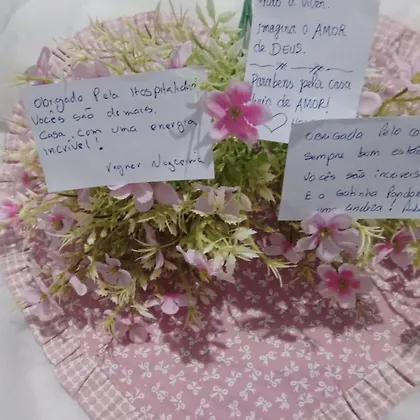 Obrigado Pela Hospitalidade
Vocês são demais.
Casa, com uma energia
incrível!
Vagner Nogueira
não a viver.
imagina o AMOR
de DEUS.
Parabens pela casa
cheia de AMOR!
Obrigada Pelo
Sempre bom
Vocês são incríveis
E a Gatinha
uma